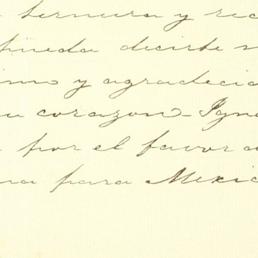 ternura y rec
pueda decirte n
imo y agradecid
u corazon_ Igna
por el favor d
na para Mexic